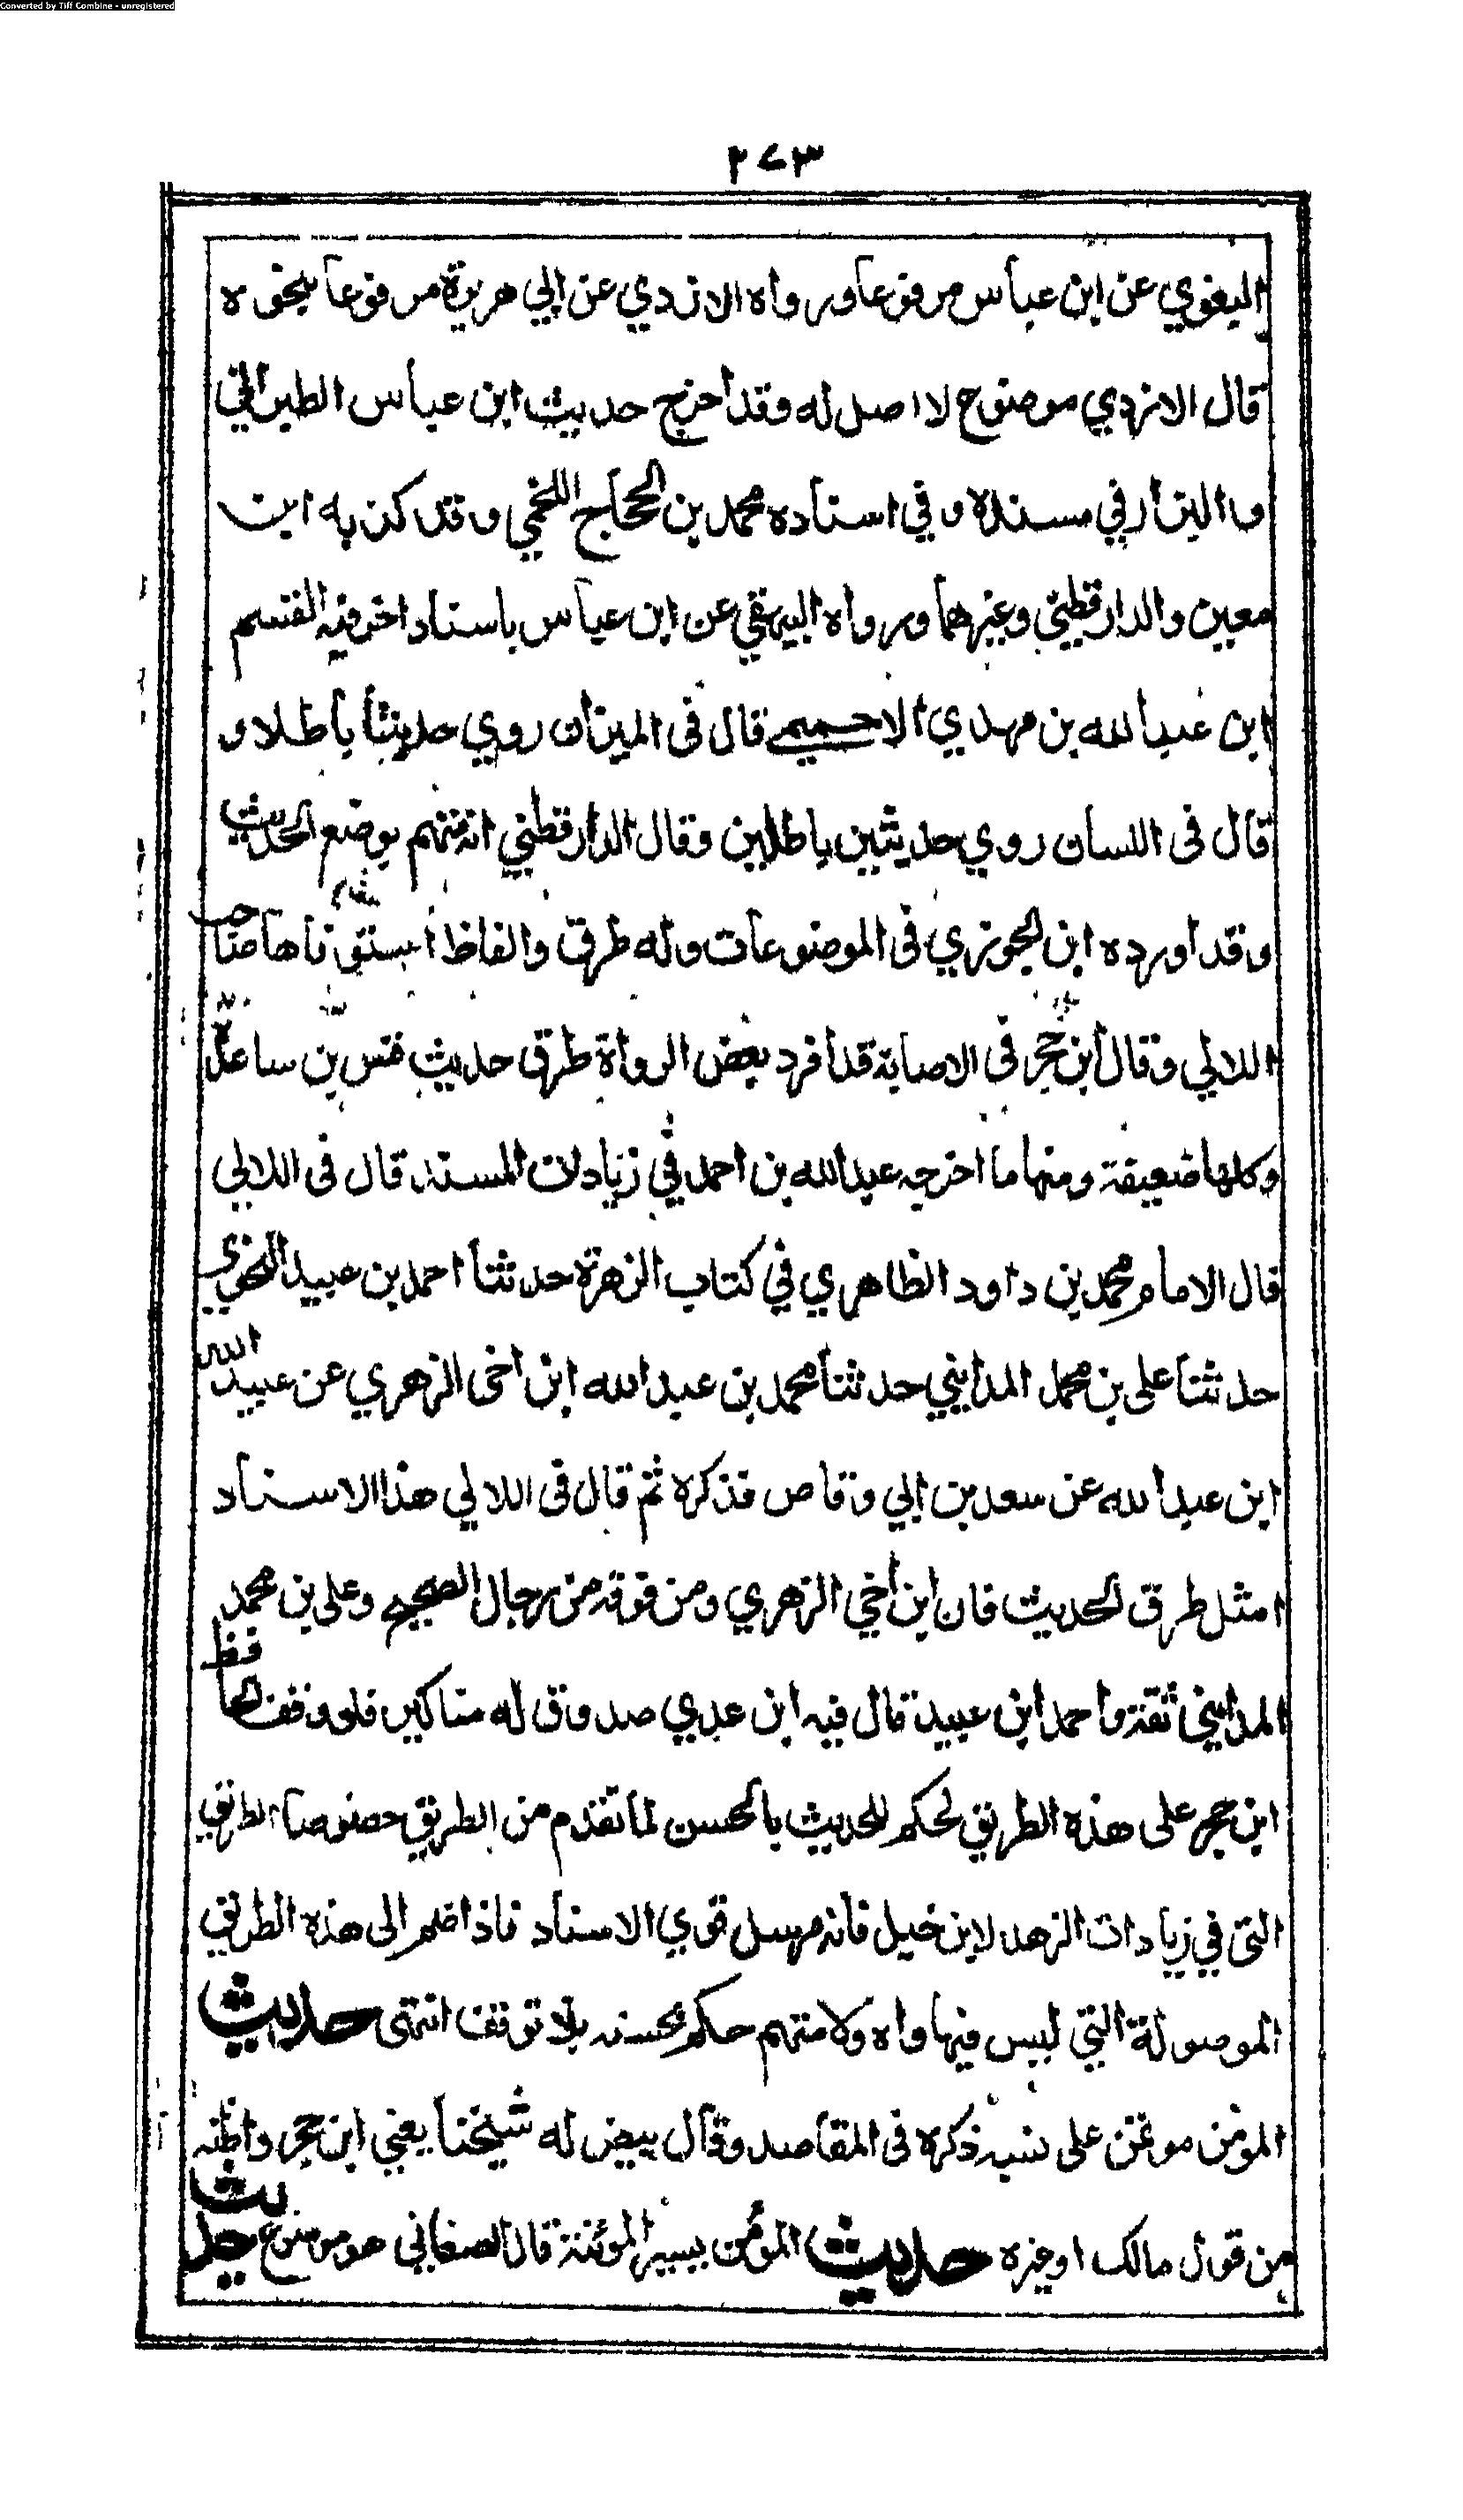 Converted by Tiff Combine - unregistered
٢٧٣
البغوي عن ابن عباس مرفوعا ورواه الازدي عن ابي هريرة مرفوعا بنحوه
قال الازدي موضوع لا اصل له وقد اخرج حديث ابن عباس الطبراني
والبزار في مسنده وفي اسناده محمد بن الحجاج اللخمي وقد كذبه ابن
معين والدارقطني وغيرهما ورواه البيهقي عن ابن عباس باسناد اخر فيه القسم
ابن عبد الله بن مهدي الاخميمي قال فى الميزان روي حديثا باطلا و
قال فى اللسان روي حديثين باطلين وقال الدارقطني انه متهم بوضع الحديث
وقد اورده ابن الجوزي فى الموضوعات وله طرق والفاظ استوفاها صاحب
اللالي وقال ابن حجر فى الاصابة قد افرد بعض الرواة طرق حديث قس بن ساعدة
وكلها ضعيفة ومنها ما اخرجه عبد الله بن احمد في زيادات المسند قال فى اللالي
قال الامام محمد بن داود الظاهري في كتاب الزهرة حدثنا احمد بن عبيد النحوي
حدثنا على بن محمد المدايني حدثنا محمد بن عبد الله ابن اخى الزهري عن عبيد الله
ابن عبد الله عن سعد بن ابي وقاص فذكره ثم قال فى اللالي هذا الاسناد
امثل طرق الحديث فان ابن أخي الزهري ومن فوقه من رجال الصحيح وعلى بن محمد
المدايني ثقة واحمد ابن عبيد قال فيه ابن عدي صدوق له مناكير فلو وقف الحافظ
ابن حجر على هذه الطريق لحكم للحديث بالحسن لما تقدم من الطريق خصوصا الطريق
التى في زيادات الزهد لابن حنبل فانه مرسل قوي الاسناد فاذا ضم الى هذه الطريق
الموصولة التي ليس فيها واه ولا متهم حكم بحسنه بلا توقف انتهى حديث
المؤمن موتمن على نسبه ذكره فى المقاصد وقال بيض له شيخنا يعني ابن حجر واظنه
من قول مالك او غيره حديث المؤمن يسير المؤنة قال الصغاني هو موضوع حديث